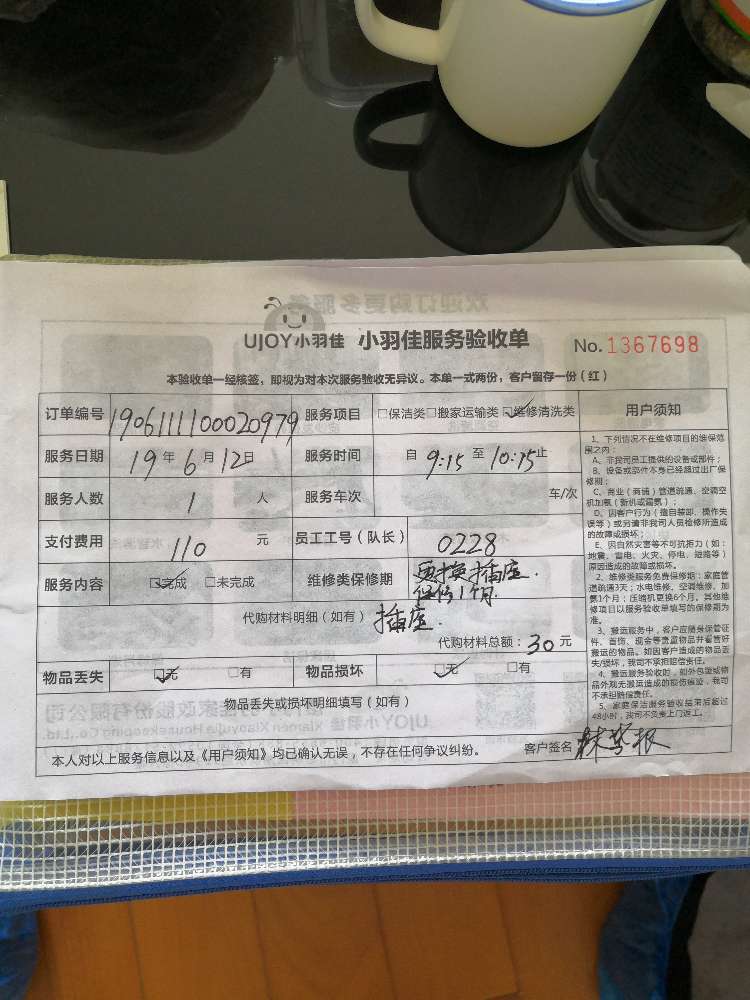 UJOY小羽佳 小羽佳服务验收单 No. 1367698
本验收单一经核签，即视为对本次服务验收无异议。本单一式两份，客户留存一份（红）
订单编号 1906111100020979 服务项目 □保洁类□搬家运输类☑维修清洗类
服务日期 19年6月12日 服务时间 自 9:15 至 10:15止
服务人数 1 人 服务车次 车/次
支付费用 110 元 员工工号（队长） 0228
服务内容 ☑完成 □未完成 维修类保修期 更换插座.
保修1个月.
代购材料明细（如有） 插座.
代购材料总额：30元
物品丢失 ☑无 □有 物品损坏 ☑无 □有
物品丢失或损坏明细填写（如有）
本人对以上服务信息以及《用户须知》均已确认无误，不存在任何争议纠纷。 客户签名
用户须知
1、下列情况不在维修项目的维保范
围之内：
A、非我司员工提供的设备或部件；
B、设备或部件本身已经超过出厂保
修期；
C、商业（商铺）管道疏通、空调空
机加氨（新机或漏氨）；
D、因客户行为（擅自装卸、操作失
误等）或另请非我司人员检修所造成
的故障或损坏；
E、因自然灾害等不可抗拒力（如：
地震、雷电、火灾、停电、短路等）
原因造成的故障或损坏。
2、维修类服务免费保修期：家庭管
道疏通3天；水电维修、空调维修、加
氨1个月；压缩机更换6个月。其他维
修项目以服务验收单填写的保修期为
准。
3、搬运服务中，客户应随身保管证
件、首饰、现金等贵重物品并看管好
搬运的物品。如因客户造成的物品丢
失/损坏，我司不承担赔偿责任。
4、搬运服务验收时，如外包装或物
品外观无搬运造成的损伤痕迹，我司
不承担赔偿责任。
5、家庭保洁服务验收结束后超过
48小时，我司不负责上门返工。